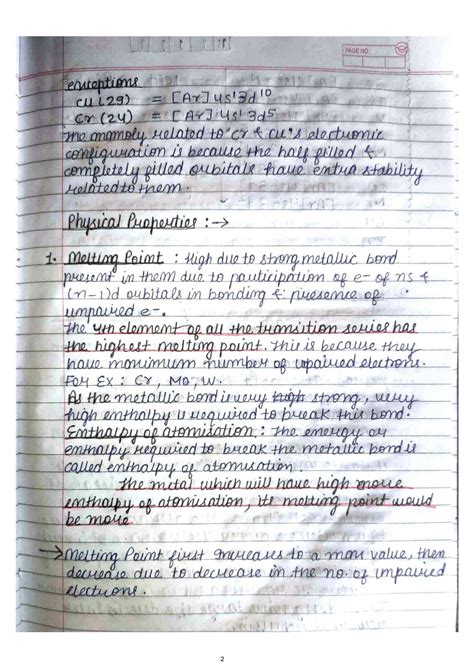 PAGE NO.:
exceptions
Cu (29) = [Ar] 4s¹3d¹⁰
Cr (24) = [Ar] 4s¹3d⁵
The anamoly related to Cr & Cu's electronic
configuration is because the half filled &
completely filled orbitals have extra stability
related to them.
Physical Properties :→
1. Melting Point : High due to strong metallic bond
present in them due to participation of e- of ns &
(n-1)d orbitals in bonding & presence of
unpaired e-.
The 4th element of all the transition series has
the highest melting point. This is because they
have maximum number of upaired electrons.
For Ex : Cr, Mo, W.
As the metallic bond is very high strong, very
high enthalpy is required to break this bond.
Enthalpy of atomisation : The energy or
enthalpy required to break the metallic bond is
called enthalpy of atomisation.
The metal which will have high more
enthalpy of atomisation, its melting point would
be more
→ Melting Point first Increases to a max value, then
decrease due to decrease in the no. of unpaired
electrons.
2